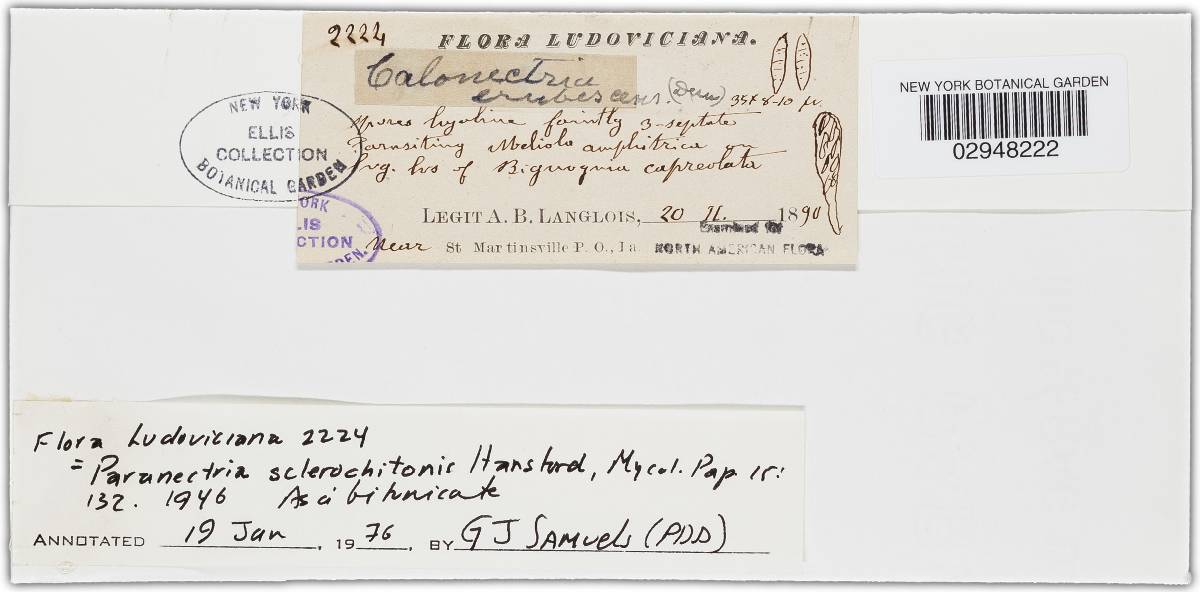 2224
FLORA LUDOVICIANA.
Calonectria
erubescens. (Desm)
35 x 8-10 μ.
Spores hyaline faintly 3-septate
Parasiting Meliola amphitricha on
lvg. lvs of Bignognia capreolata
LEGIT A. B. LANGLOIS, 20 II. 1890
Examined for
NORTH AMERICAN FLORA
Near St Martinsville P. O., La
NEW YORK
ELLIS
COLLECTION
BOTANICAL GARDEN
ORK
LIS
CTION
DEN.
NEW YORK BOTANICAL GARDEN
02948222
Flora Ludoviciana 2224
= Paranectria sclerochitonis Hansford, Mycol. Pap 15:
132. 1946 Asci bitunicate
ANNOTATED 19 Jan, 1976, BY G J Samuels (PDD)